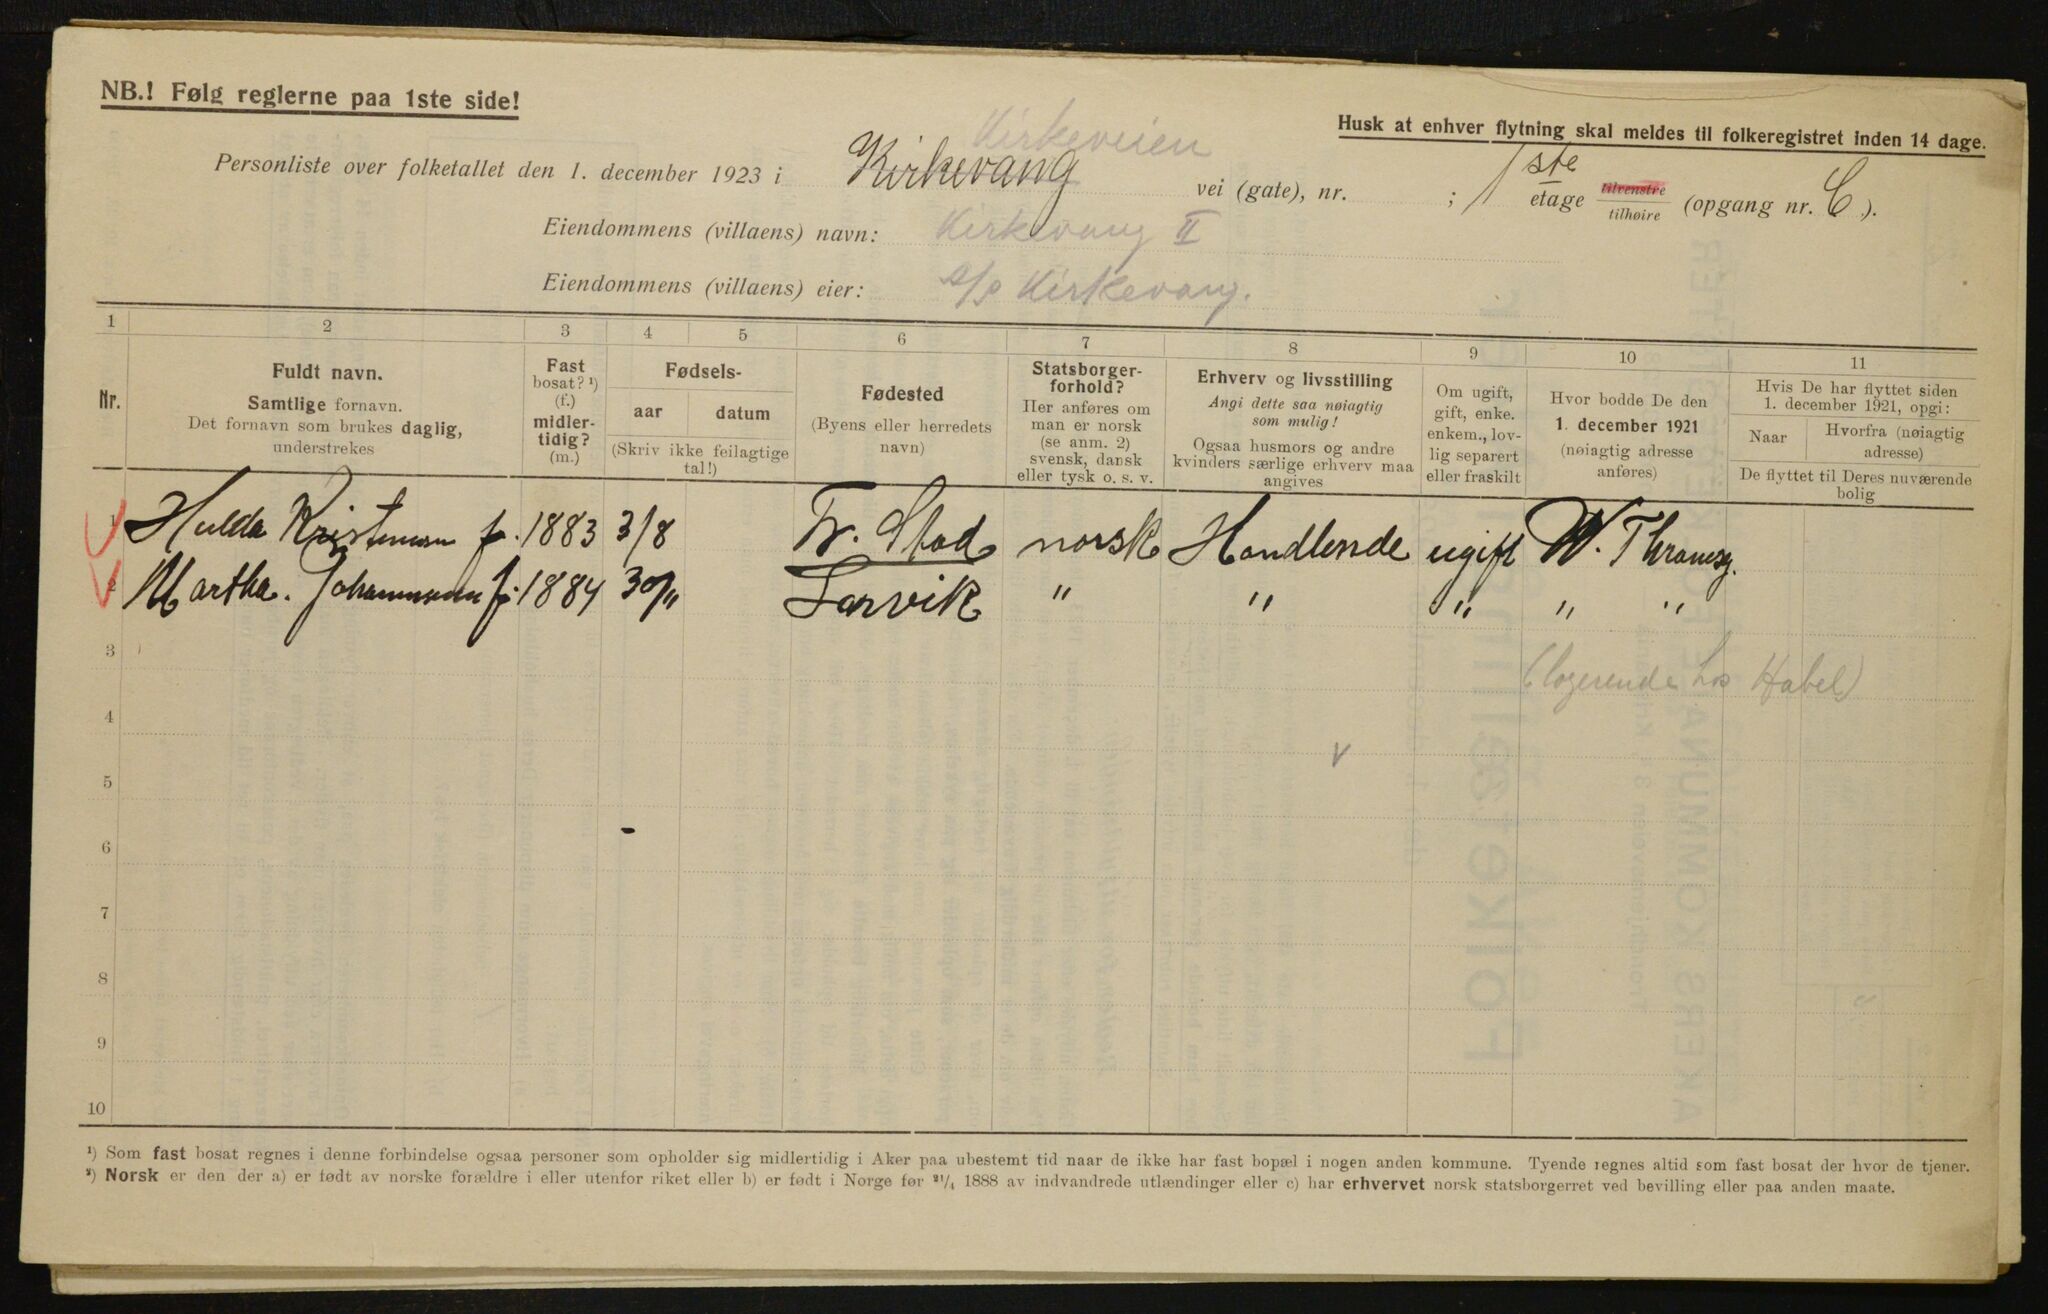 NB.! Følg reglerne paa 1ste side!
Husk at enhver flytning skal meldes til folkeregistret inden 14 dage.
Kirkeveien
Personliste over folketallet den 1. december 1923 i Kirkevang vei (gate), nr. ; 1ste etage tilvenstre tilhøire (opgang nr. C).
Eiendommens (villaens) navn: Kirkevang II
Eiendommens (villaens) eier: a/s Kirkevang.
1 2 3 4 5 6 7 8 9 10 11
Nr.
Fuldt navn.
Samtlige fornavn.
Det fornavn som brukes daglig,
understrekes
Fast
bosat? ¹)
(f.)
midler-
tidig?
(m.)
Fødsels-
aar datum
(Skriv ikke feilagtige
tal!)
Fødested
(Byens eller herredets
navn)
Statsborger-
forhold?
Her anføres om
man er norsk
(se anm. 2)
svensk, dansk
eller tysk o. s. v.
Erhverv og livsstilling
Angi dette saa nøiagtig
som mulig!
Ogsaa husmors og andre
kvinders særlige erhverv maa
angives
Om ugift,
gift, enke.
enkem., lov-
lig separert
eller fraskilt
Hvor bodde De den
1. december 1921
(nøiagtig adresse
anføres)
Hvis De har flyttet siden
1. december 1921, opgi:
Naar
Hvorfra (nøiagtig
adresse)
De flyttet til Deres nuværende
bolig
1 Hulda Kristensen f. 1883 3/8 Fr. Stad norsk Handlende ugift W. Thranesg.
Martha. Johannesen f. 1884 30/11 Larvik " " " " "
3 (logerende hos Habel)
4
5
6
7
8
9
10
¹) Som fast bosat regnes i denne forbindelse ogsaa personer som opholder sig midlertidig i Aker paa ubestemt tid naar de ikke har fast bopæl i nogen anden kommune. Tyende regnes altid som fast bosat der hvor de tjener.
²) Norsk er den der a) er født av norske forældre i eller utenfor riket eller b) er født i Norge før ²¹/₄ 1888 av indvandrede utlændinger eller c) har erhvervet norsk statsborgerret ved bevilling eller paa anden maate.